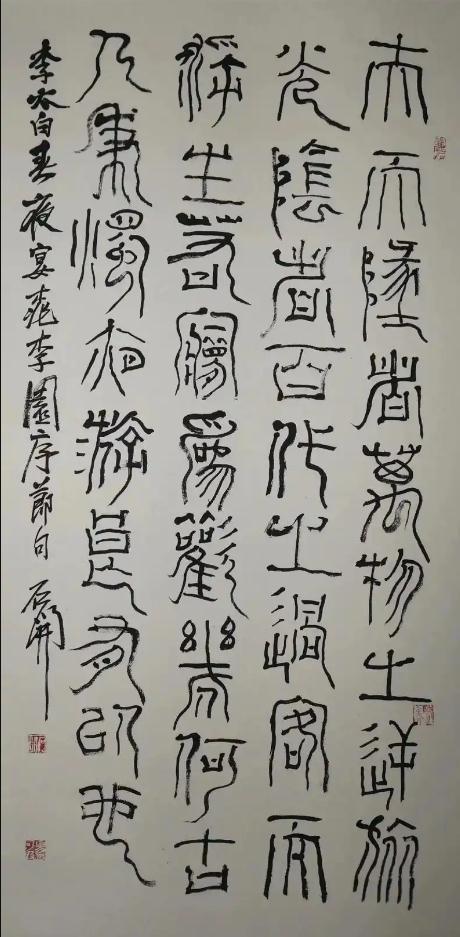 夫天墬者萬物之逆旅
光陰者百代之過客而
浮生若夢爲歡幾何古
人秉燭夜遊良有以也
李太白春夜宴桃李園序節句 石開